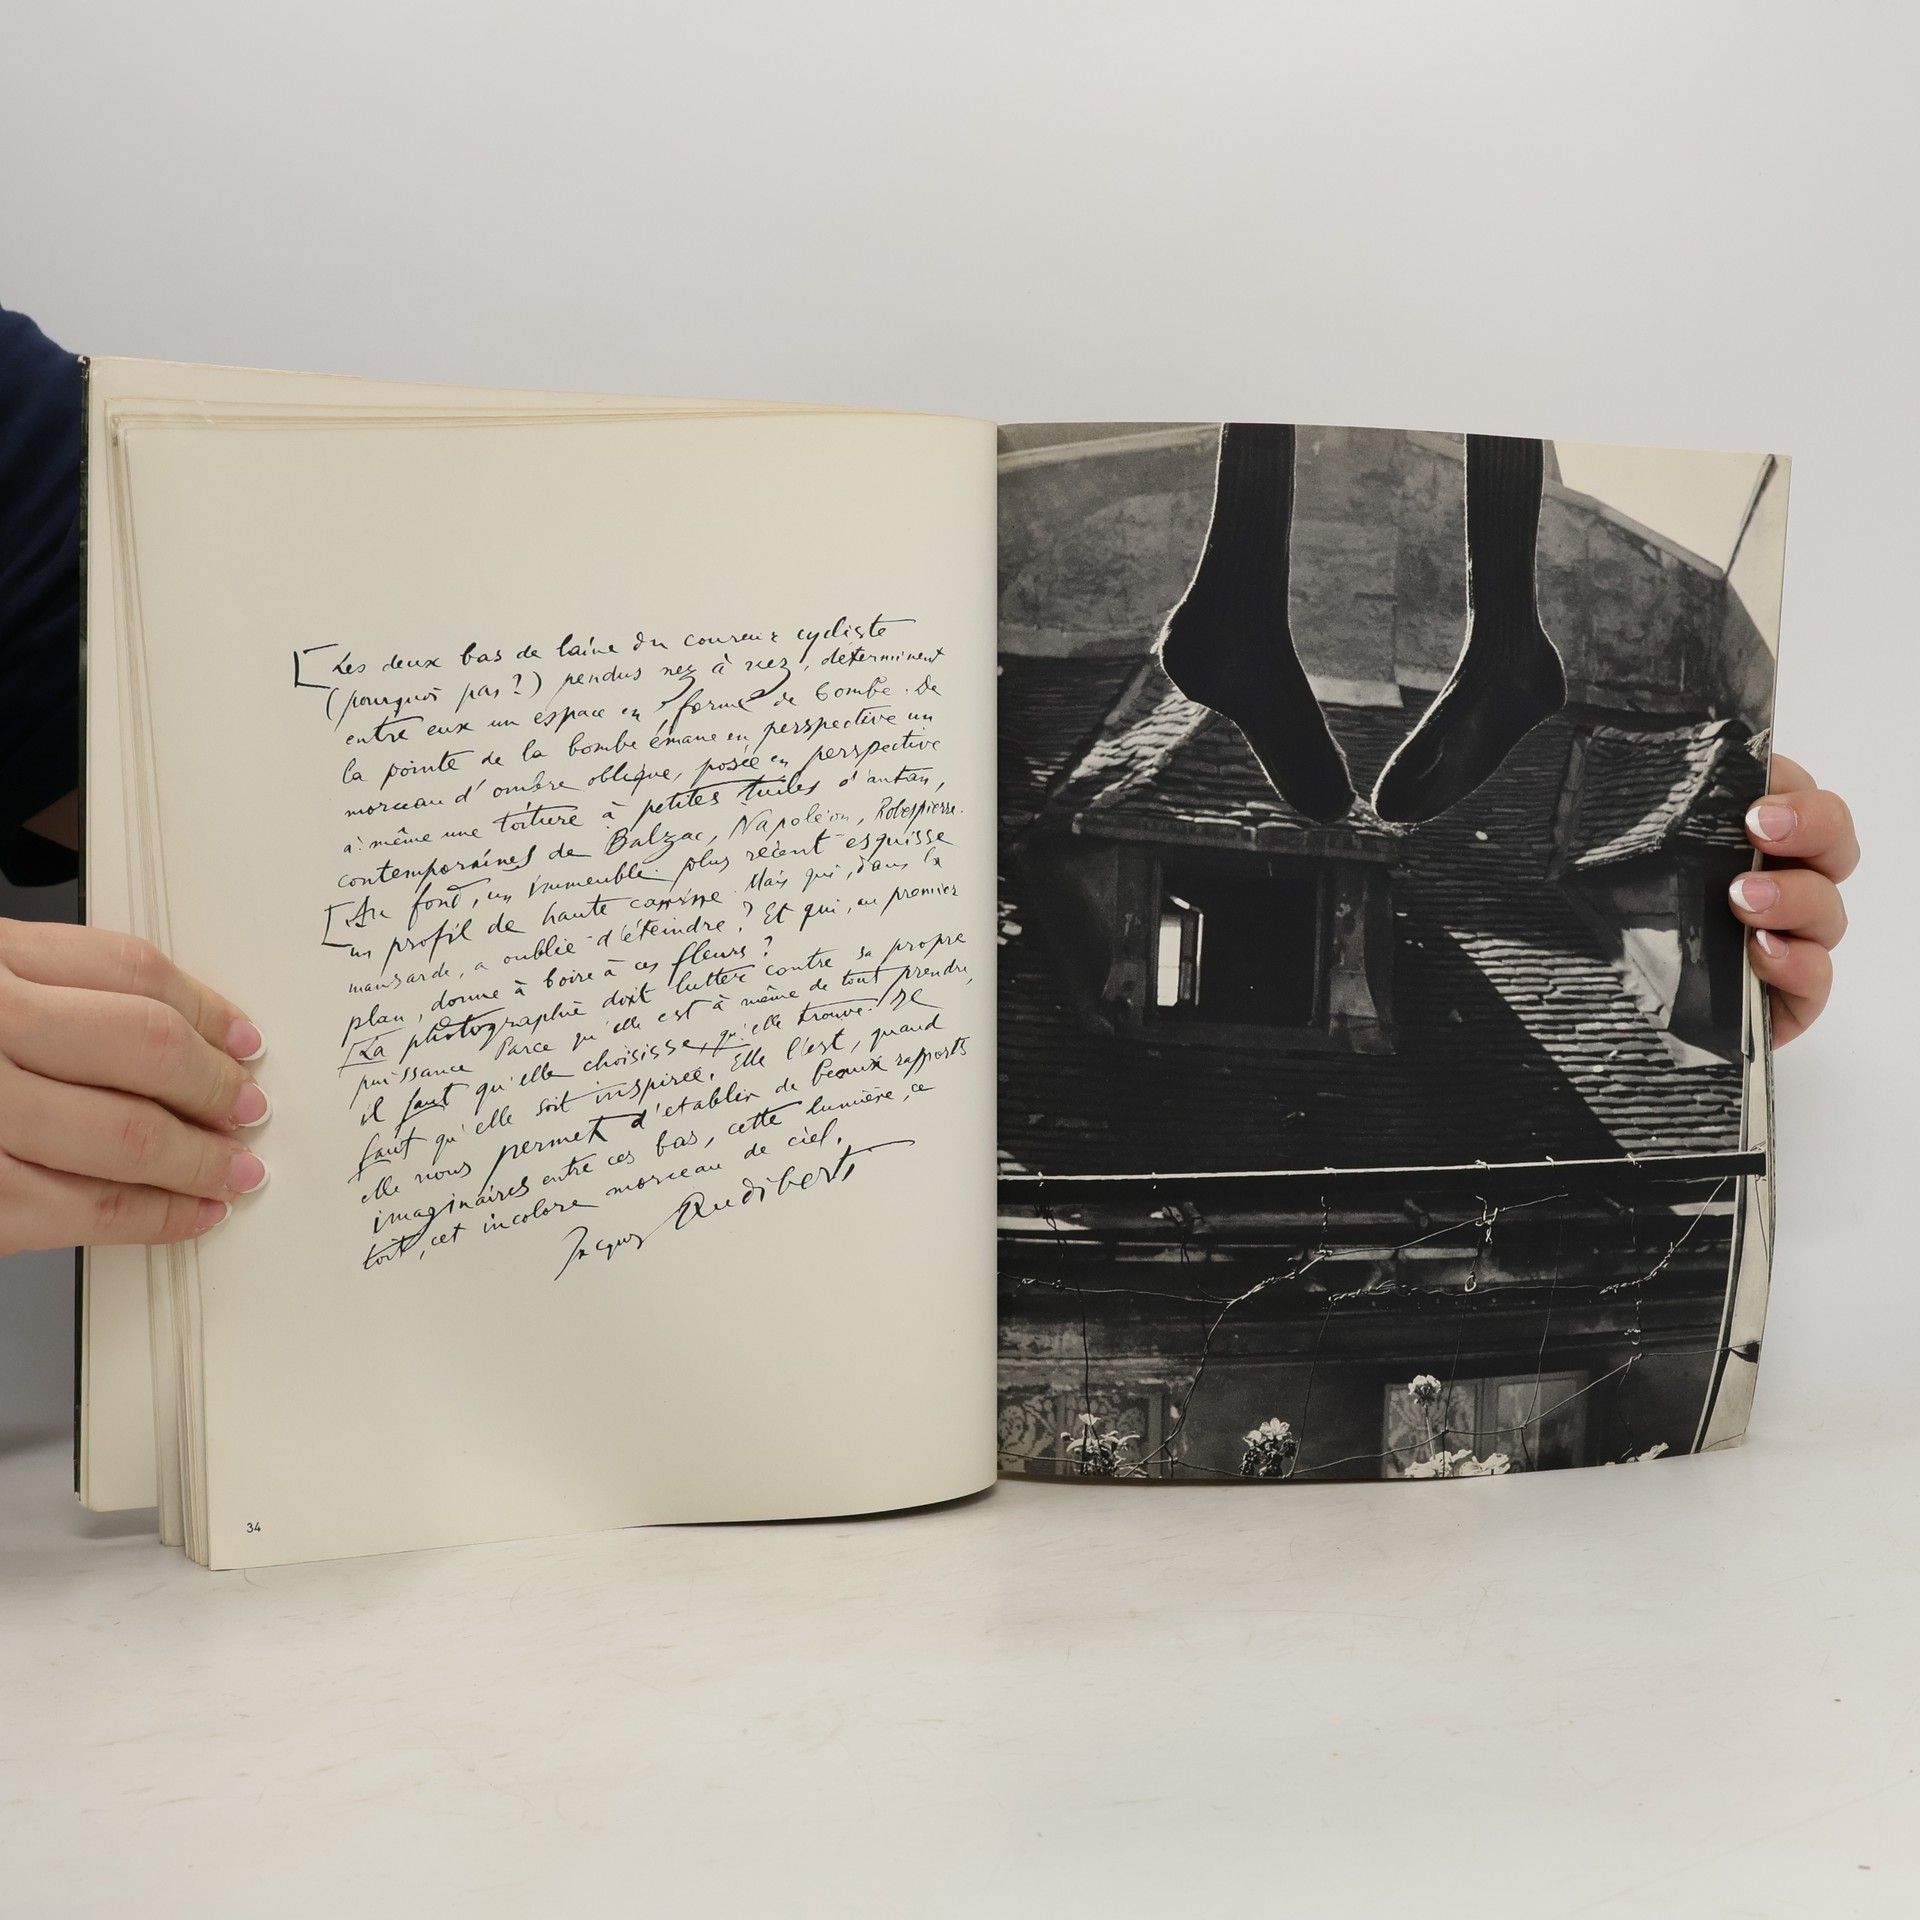 Les deux bas de laine du coureur cycliste
(pourquoi pas ?) pendus nez à nez, déterminent
entre eux un espace en forme de bombe. De
la pointe de la bombe émane en perspective un
morceau d'ombre oblique, posée en perspective
à même une toiture à petites tuiles d'antan,
contemporaines de Balzac, Napoléon, Robespierre.
Au fond, un immeuble plus récent esquisse
un profil de haute . Mais qui, dans la
mansarde, a oublié d'éteindre ? Et qui, au premier
plan, donne à boire à ces fleurs ?
La photographie doit lutter contre sa propre
puissance Parce qu'elle est à même de tout prendre,
il faut qu'elle choisisse, qu'elle trouve. Il
faut qu'elle soit inspirée. Elle l'est, quand
elle nous permet d'établir de beaux rapports
imaginaires entre ces bas, cette lumière, ce
toit, cet incolore morceau de ciel.
Jacques Audiberti
34